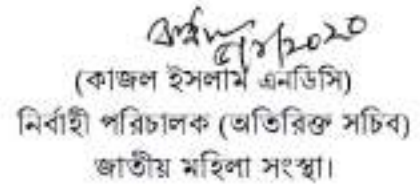 ৫/১/২০২০
(কাজল ইসলাম এনডিসি)
নির্বাহী পরিচালক (অতিরিক্ত সচিব)
জাতীয় মহিলা সংস্থা।